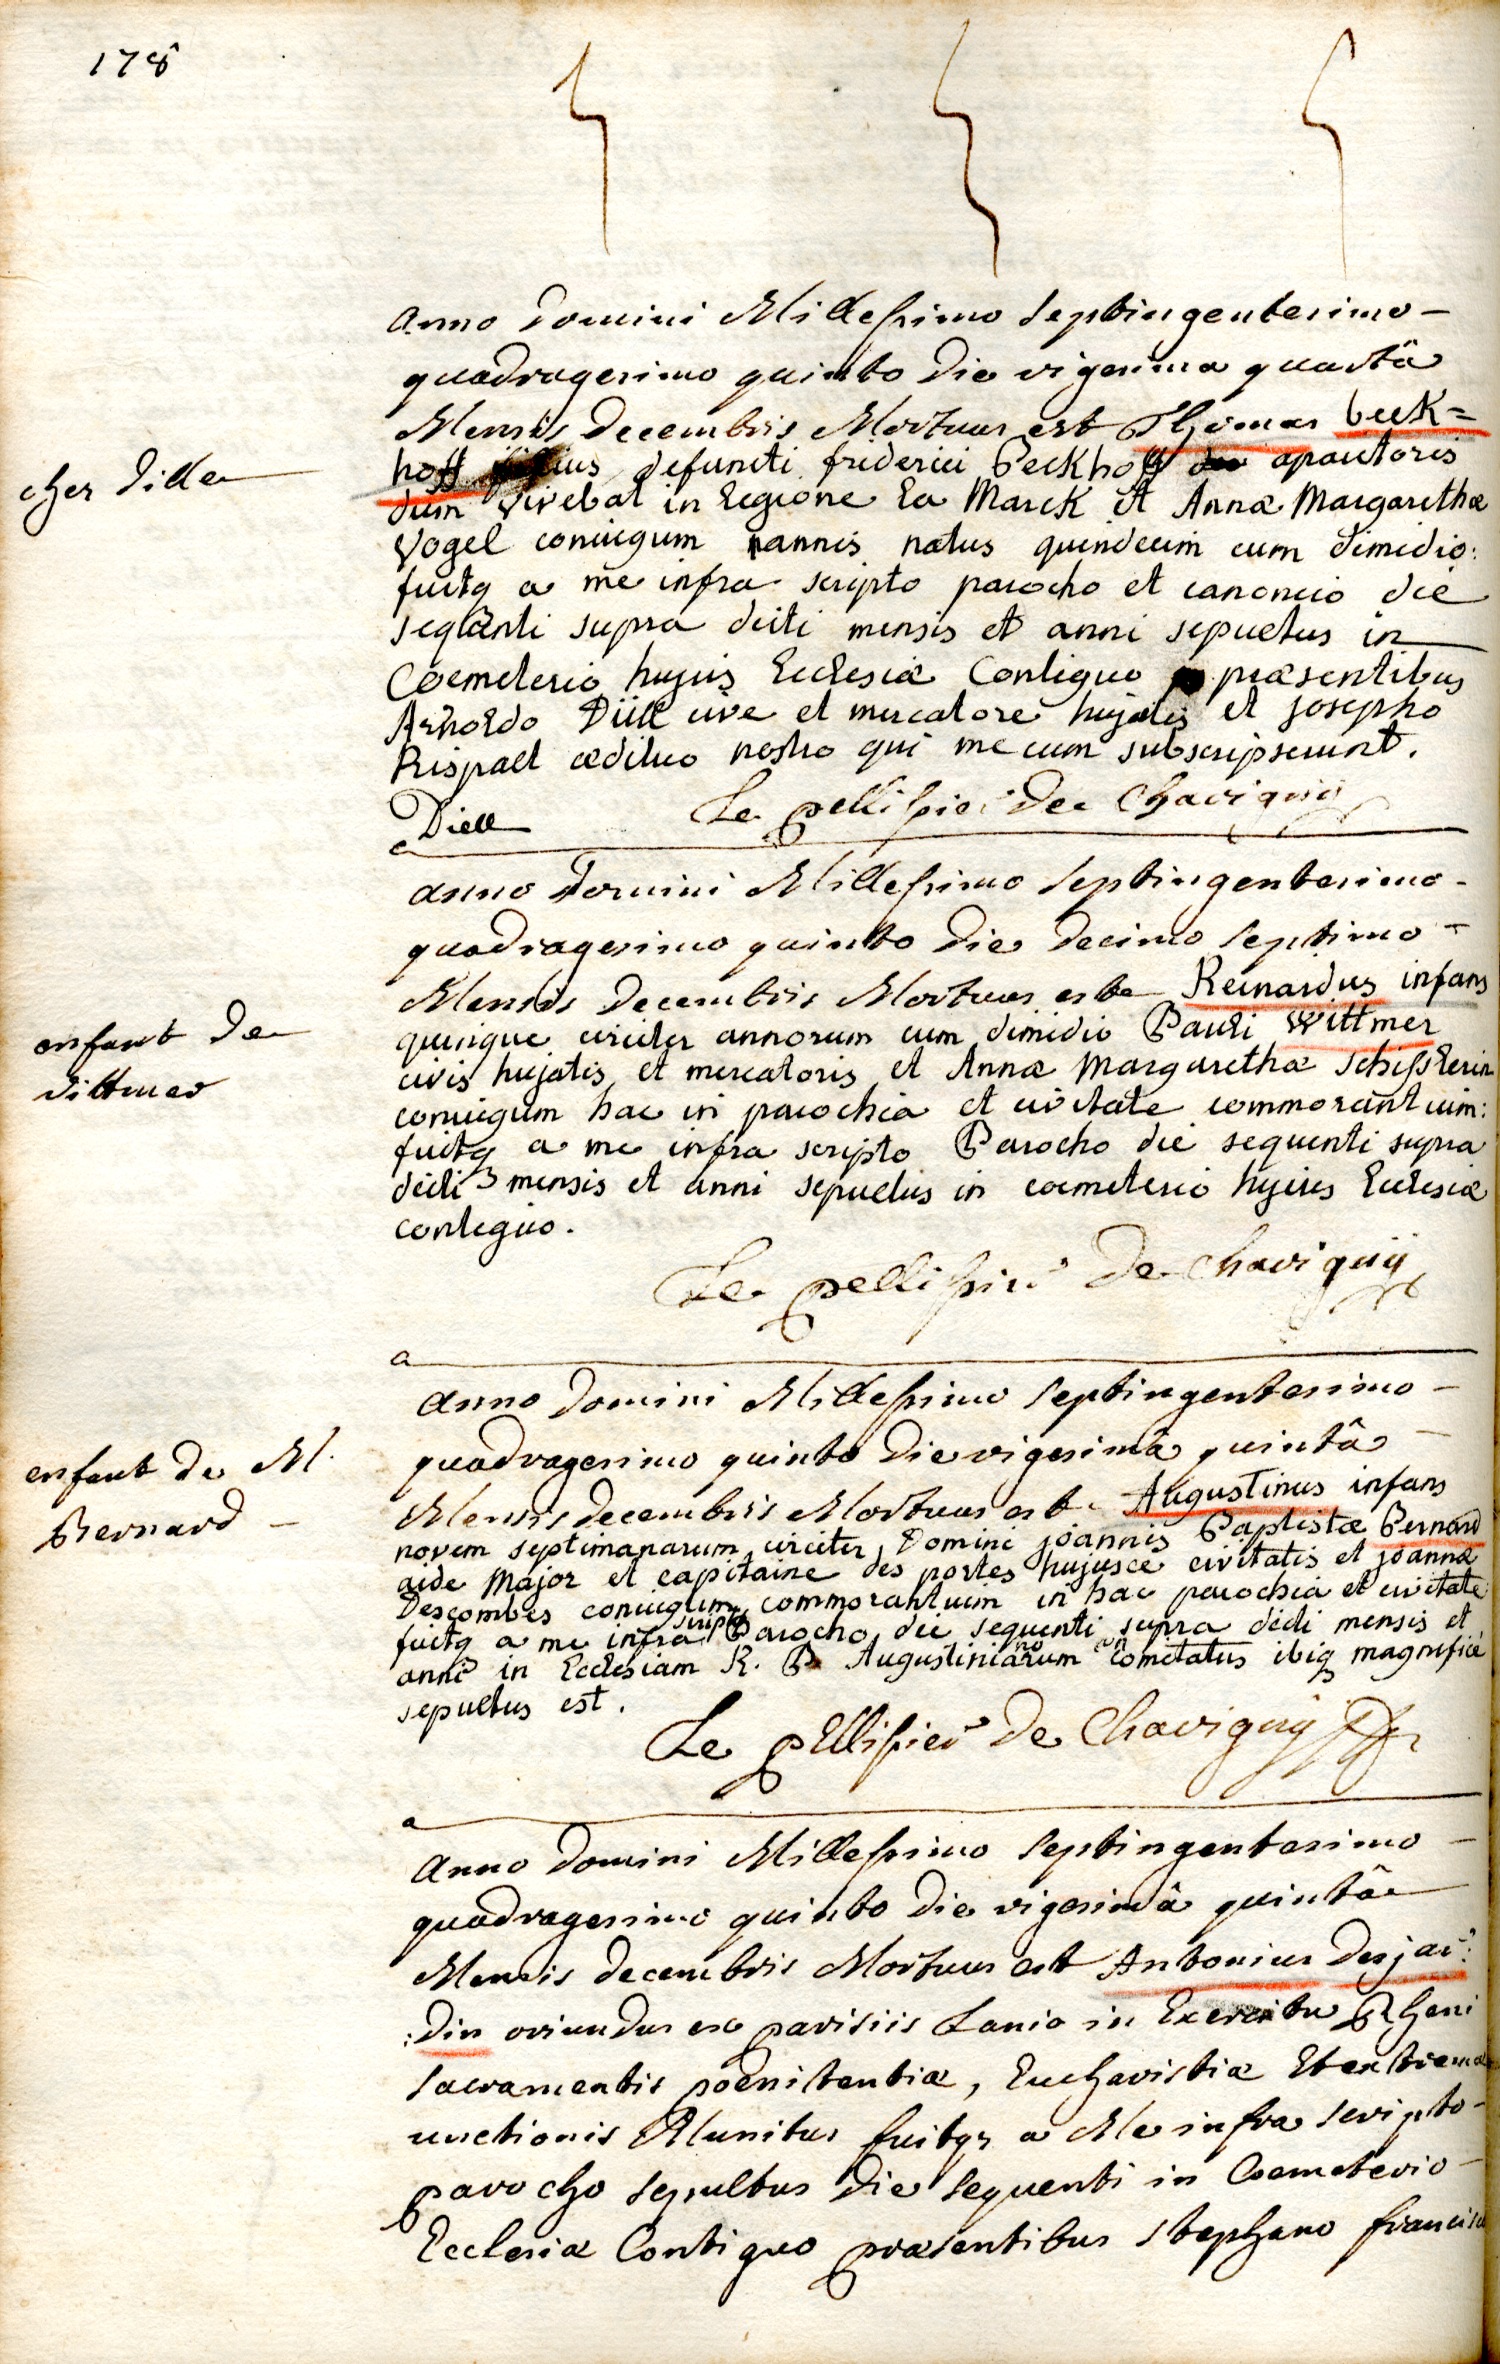 178
Anno Domini Millessimo Septingentesimo -
quadragesimo quinto Die vigesima quartâ
cher Dille
Mensis Decembris Mortuus est Thomas beck=
hoff filius defuncti friderici Beckhoff apautoris
dum vivebat in Legione La Marck et Annæ Margarethæ
Vogel coniugum annis natus quindecim cum dimidio:
fuitq a me infra scripto parocho et canonico die
seqŭenti supra dicti mensis et anni sepultus in
Coemeterio hujus Ecclesiæ Contiguo præsentibus
Arnoldo Diill cive et mercatore hujatis et josepho
Rispalt ædituo nostro qui me cum subscripserunt.
Diell
Le pellissier De Chavigny
anno Domini Millessimo Septingentesimo -
quadragesimo quinto Die Decimo septimo -
enfant De
Vittmer
Mensis Decembris Mortuus est Reinardus infans
quinque circiter annorum cum dimidio Pauli Wittmer
civis hujatis et mercatoris et Annæ Margarethæ Schisslerin
coniugum hac in parochia et civitate commorantium:
fuitq a me infra scripto Parocho die sequenti supra
dicti mensis et anni sepultus in coemeterio hujus Ecclesiæ
contiguo.
Le pellissier De Chavigny
Anno Domini Millessimo Septingentesimo -
quadragesimo quinto Die vigesimâ quintâ -
enfant de M.
Bernard -
Mensis Decembris Mortuus est Augustinus infans
novem septimanarum circiter, Domini joannis Baptistæ Bernard
aide Major et capitaine des portes hujusce civitatis et joannæ
Descombes coniugum commorantium in hac parochia et civitate
fuitq a me infra scripto Parocho, die sequenti supra dicti mensis et
anni in Ecclesiam R. P. Augustinianorum comitatus ibiq magnifice
sepultus est.
Le pEllissier De Chavigny
Anno Domini Millessimo Septingentesimo -
quadragesimo quinto Die vigesimâ quintâ
Mensis Decembris Mortuus est Antonius Desjar:
:din oriundus ex parisiis Lanio in Exercitu Rheni
sacramentis poenitentiæ, Eucharistiæ Et extremæ
unctionis Munitus fuitq a Me infra scripto -
parocho sepultus Die sequenti in Coemeterio -
Ecclesiæ Contiguo præsentibus stephano francisco